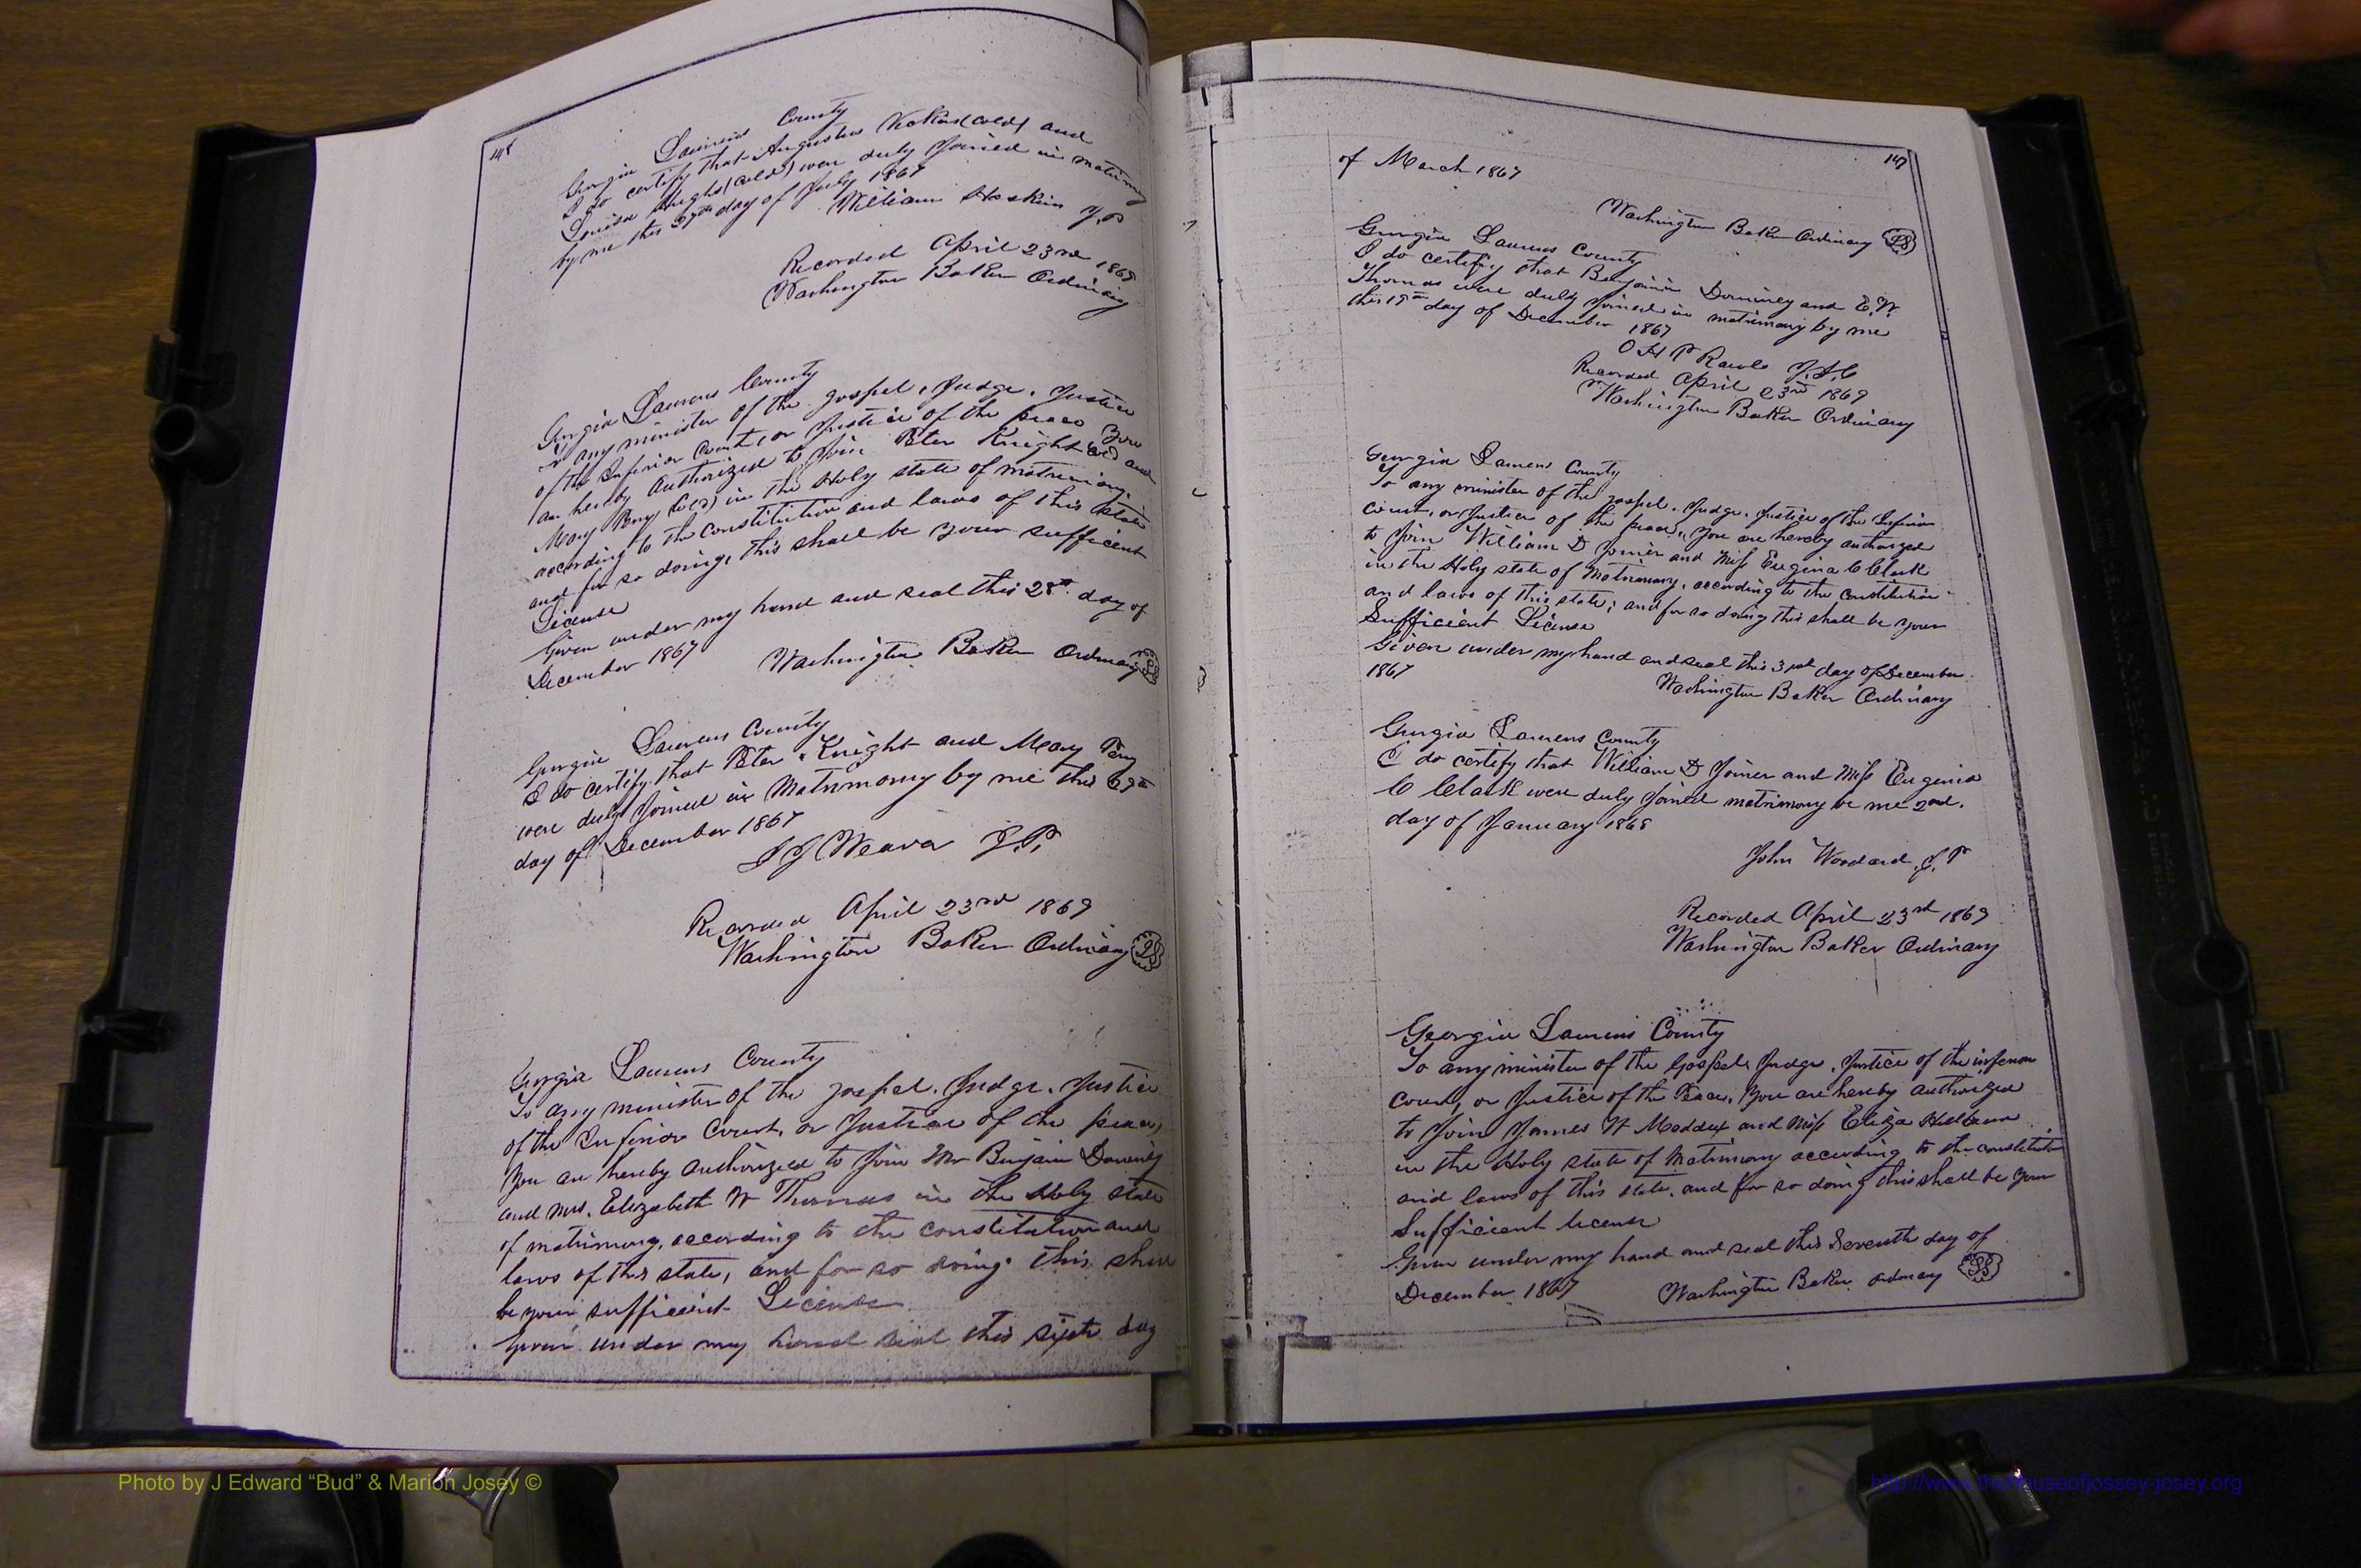 Georgia Laurens County
I do certify that Augustus (cold) and
Louisa (cold) were duly Joined in matrimony
by me this 27th day of July 1867
William Hoskin J.P
Recorded April 23rd 1869
Washington Baker Ordinary
Georgia Laurens County
To any minister of the gospel, Judge, Justice
of the Inferior Court, or Justice of the peace You
are hereby Authorized to Join Peter Knight (cold) and
Mary (cold) in the Holy state of matrimony,
according to the Constitution and laws of this State
and for so doing, this shall be your sufficient
License
Given under my hand and seal this 28th day of
December 1867
Washington Baker Ordinary LS
Georgia Laurens County
I do certify that Peter Knight and Mary
were duly Joined in Matrimony by me this
day of December 1867
J J Weaver J.P.
Recorded April 23rd 1869
Washington Baker Ordinary LS
Georgia Laurens County
To any minister of the gospel, Judge, Justice
of the Inferior Court, or Justice of the peace,
You are hereby Authorized to Join Mr Benjain Dominey
and Mrs. Elizabeth W Thomas in the Holy state
of matrimony, according to the constitution and
laws of this state, and for so doing this shall
be your sufficient License
Given under my hand seal this sixth day
147
of March 1867
Washington Baker Ordinary LS
Georgia Laurens County
I do certify that Benjamin Dominey and E.W.
Thomas were duly Joined in matrimony by me
this 19th day of December 1867
O H P Rawls J.I.C
Recorded April 23rd 1869
Washington Baker Ordinary
Georgia Laurens County
To any minister of the gospel, Judge, Justice of the Inferior
court, or Justice of the peace, You are hereby authorized
to Join William D Joiner and Miss Eugina C Clark
in the Holy state of Matrimony, according to the Constitution
and laws of this state, and for so doing this shall be your
Sufficient License
Given under my hand and seal this 31st day of December
1867
Washington Baker Ordinary
Georgia Laurens County
I do certify that William D Joiner and Miss Eugenia
C Clark were duly Joined matrimony be me 2nd.
day of January 1868
John Woodard J.P
Recorded April 23rd 1869
Washington Baker Ordinary
Georgia Laurens County
To any minister of the Gospel, Judge, Justice of the inferior
court, or Justice of the Peace, You are hereby authorized
to Join James H Maddux and Miss Eliza
in the Holy state of Matrimony according to the constitution
and laws of this state, and for so doing this shall be your
Sufficient license
Given under my hand and seal this Seventh day of
December 1867
Washington Baker Ordinary LS
Photo by J Edward “Bud” & Marion Josey ©
http://www.thehouseofjossey-josey.org